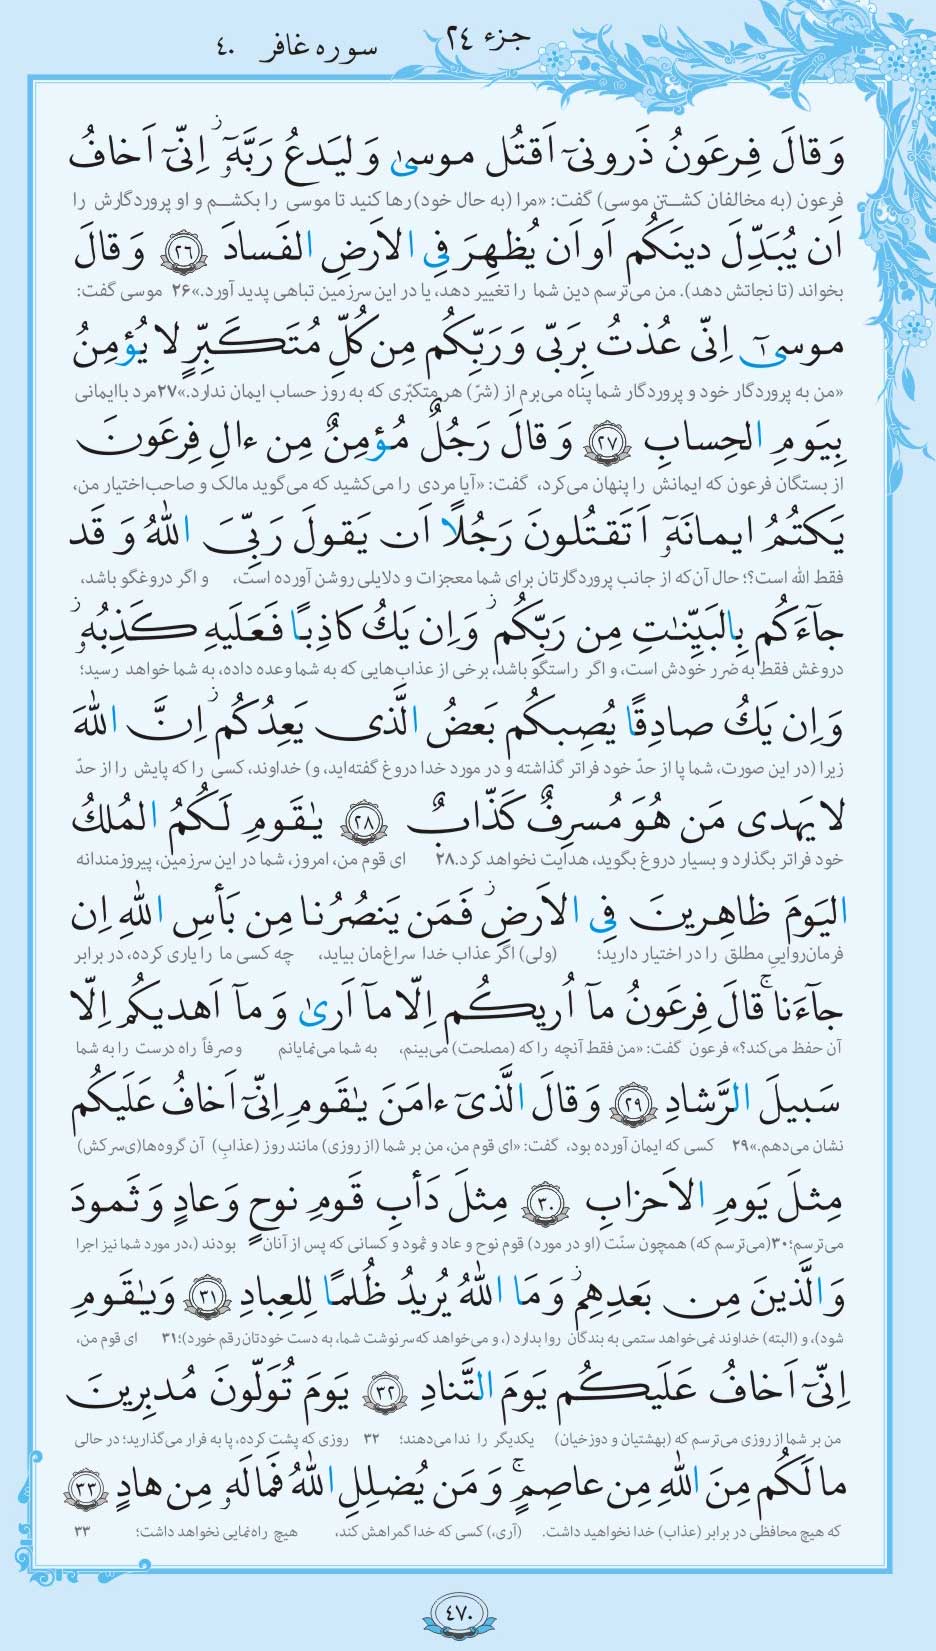 جزء ۲۴
سوره غافر
۴۰
وَ قالَ فِرعَونُ ذَرونیٓ اَقتُل موسیٰ وَ لیَدعُ رَبَّهٓۥ ۖ اِنّیٓ اَخافُ
فرعون (به مخالفان کشتن موسی) گفت: «مرا (به حال خود) رها کنید تا موسی را بکشم و او پروردگارش را
اَن یُبَدِّلَ دینَکُم اَو اَن یُظهِرَ فِی الاَرضِ الفَسادَ ﴿۲۶﴾ وَ قالَ
بخواند (تا نجاتش دهد). من می‌ترسم دین شما را تغییر دهد، یا در این سرزمین تباهی پدید آورد.»۲۶ موسی گفت:
موسیٰٓ اِنّی عُذتُ بِرَبّی وَ رَبِّکُم مِن کُلِّ مُتَکَبِّرٍ لا یُؤمِنُ
«من به پروردگار خود و پروردگار شما پناه می‌برم از (شرّ) هر متکبّری که به روز حساب ایمان ندارد.»۲۷مرد باایمانی
بِیَومِ الحِسابِ ﴿۲۷﴾ وَ قالَ رَجُلٌ مُؤمِنٌ مِن ءالِ فِرعَونَ
از بستگان فرعون که ایمانش را پنهان می‌کرد، گفت: «آیا مردی را می‌کشید که می‌گوید مالک و صاحب‌اختیار من،
یَکتُمُ ایمانَهٓۥ اَتَقتُلونَ رَجُلًا اَن یَقولَ رَبِّیَ اللهُ وَ قَد
فقط الله است؟؛ حال آن‌که از جانب پروردگارتان برای شما معجزات و دلایلی روشن آورده است، و اگر دروغگو باشد،
جآءَکُم بِالبَیِّنٰتِ مِن رَبِّکُم ۖ وَ اِن یَکُ کاذِبًا فَعَلَیهِ کَذِبُهۥ ۖ
دروغش فقط به ضرر خودش است، و اگر راستگو باشد، برخی از عذاب‌هایی که به شما وعده داده، به شما خواهد رسید؛
وَ اِن یَکُ صادِقًا یُصِبکُم بَعضُ الَّذی یَعِدُکُم ۖ اِنَّ اللهَ
زیرا (در این صورت، شما پا از حدّ خود فراتر گذاشته و در مورد خدا دروغ گفته‌اید، و) خداوند، کسی را که پایش را از حدّ
لا یَهدی مَن هُوَ مُسرِفٌ کَذّابٌ ﴿۲۸﴾ یٰقَومِ لَکُمُ المُلکُ
خود فراتر بگذارد و بسیار دروغ بگوید، هدایت نخواهد کرد.۲۸ ای قوم من، امروز، شما در این سرزمین، پیروزمندانه
الیَومَ ظاهِرینَ فِی الاَرضِ ۖ فَمَن یَنصُرُنا مِن بَأسِ اللهِ اِن
فرمان‌روایی مطلق را در اختیار دارید؛ (ولی) اگر عذاب خدا سراغ‌مان بیاید، چه کسی ما را یاری کرده، در برابر
جآءَنا ۚ قالَ فِرعَونُ مآ اُریکُم اِلّا مآ اَریٰ وَ مآ اَهدیکُم اِلّا
آن حفظ می‌کند؟» فرعون گفت: «من فقط آنچه را که (مصلحت) می‌بینم، به شما می‌نمایانم و صرفاً راه درست را به شما
سَبیلَ الرَّشادِ ﴿۲۹﴾ وَ قالَ الَّذیٓ ءامَنَ یٰقَومِ اِنّیٓ اَخافُ عَلَیکُم
نشان می‌دهم.»۲۹ کسی که ایمان آورده بود، گفت: «ای قوم من، من بر شما (از روزی) مانند روز (عذابِ) آن گروه‌ها(ی سرکش)
مِثلَ یَومِ الاَحزابِ ﴿۳۰﴾ مِثلَ دَأبِ قَومِ نوحٍ وَ عادٍ وَ ثَمودَ
می‌ترسم؛۳۰(می‌ترسم که) همچون سنّت (او در مورد) قوم نوح و عاد و ثمود و کسانی که پس از آنان بودند (،در مورد شما نیز اجرا
وَ الَّذینَ مِن بَعدِهِم ۖ وَ مَا اللهُ یُریدُ ظُلمًا لِلعِبادِ ﴿۳۱﴾ وَ یٰقَومِ
شود)، و (البته) خداوند نمی‌خواهد ستمی به بندگان روا بدارد (، و می‌خواهد که سرنوشت شما، به دست خودتان رقم خورد)؛۳۱ ای قوم من،
اِنّیٓ اَخافُ عَلَیکُم یَومَ التَّنادِ ﴿۳۲﴾ یَومَ تُوَلّونَ مُدبِرینَ
من بر شما از روزی می‌ترسم که (بهشتیان و دوزخیان) یکدیگر را ندا می‌دهند؛ ۳۲ روزی که پشت کرده، پا به فرار می‌گذارید؛ در حالی
ما لَکُم مِنَ اللهِ مِن عاصِمٍ ۚ وَ مَن یُضلِلِ اللهُ فَما لَهۥ مِن هادٍ ﴿۳۳﴾
که هیچ محافظی در برابر (عذاب) خدا نخواهید داشت. (آری،) کسی که خدا گمراهش کند، هیچ راه‌نمایی نخواهد داشت؛ ۳۳
۴۷۰